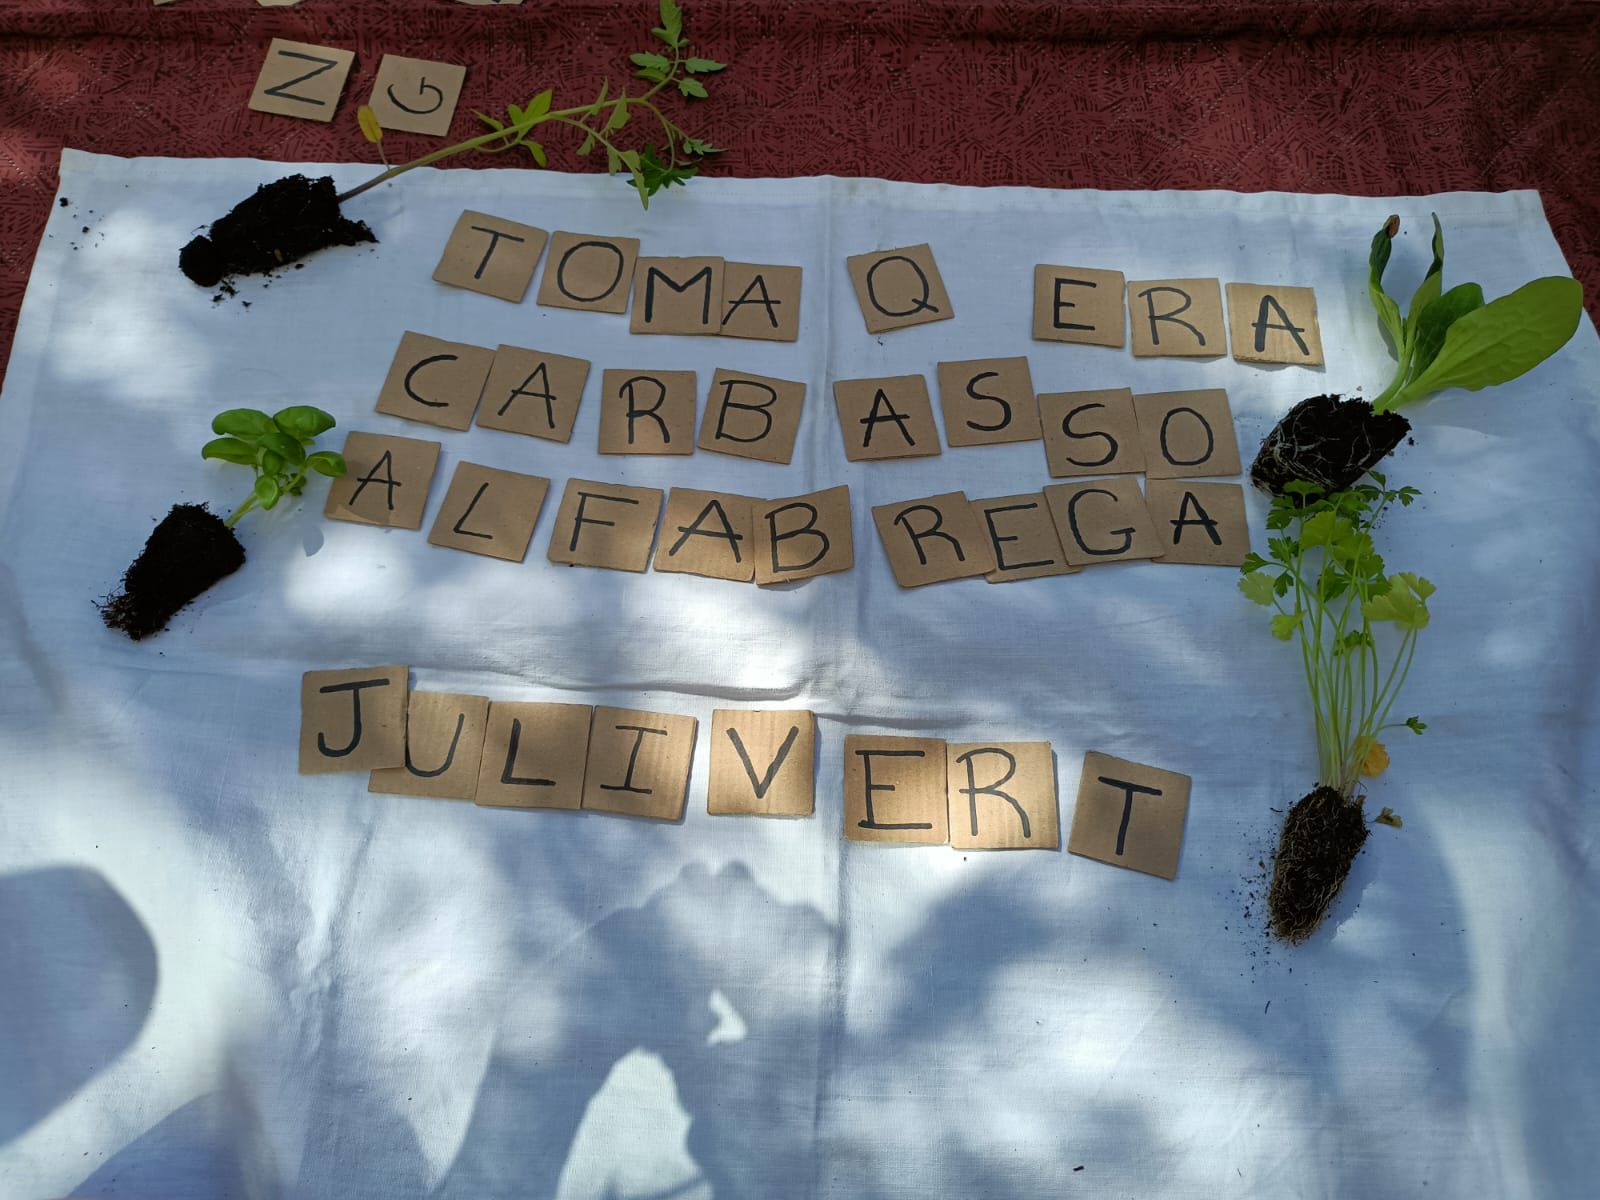 Z G
TOMA Q ERA
CARBASSO
ALFABREGA
JULIVERT